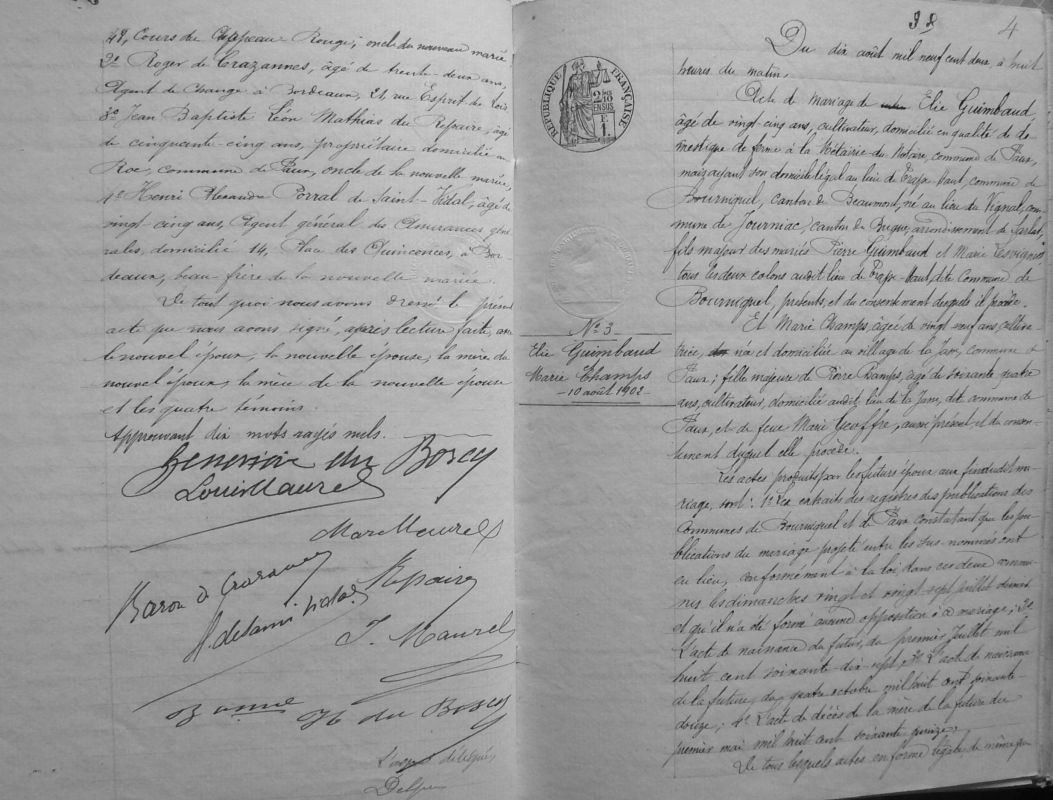 48, Cours du Chapeau Rouge; oncle du nouveau marié
2° Roger de Crazannes, âgé de trente-deux ans,
Agent de change à Bordeaux, 21, rue Esprit des Lois
3° Jean Baptiste Léon Mathias du Repaire, âgé
de cinquante-cinq ans, propriétaire domicilié au
Roc, commune de Faux, oncle de la nouvelle mariée,
4° Henri Alexandre Porral de Saint-Vidal, âgé de
vingt cinq ans, Agent général des Assurances géné
rales, domicilié 14, Place des Quinconces, à Bor-
deaux, beau-frère de la nouvelle mariée.
De tout quoi nous avons dressé le présent
acte que nous avons signé, après lecture faite, avec
le nouvel époux, la nouvelle épouse, la mère du
nouvel époux, la mère de la nouvelle épouse
et les quatre témoins.
Approuvant dix mots rayés nuls.
du Boscq
Louis Maurel
Marc Maurel
Baron de Crazannes
de Saint Vidal
Repaire
J. Maurel
du Boscq
38
4
Du dix août mil neuf cent deux, à huit
heures du matin,
RÉPUBLIQUE FRANÇAISE
Acte de mariage de Elie Guimbaud,
âgé de vingt-cinq ans, cultivateur, domicilié en qualité de do-
mestique de ferme à la Métairie du Notaire, commune de Faux,
mais ayant son domicile légal au lieu de Haut, commune de
Bourniquel, canton de Beaumont, né au lieu du Vignal, com-
mune de Journiac canton du Bugue, arrondissement de Sarlat,
fils majeur des mariés Pierre Guimbaud et Marie
tous les deux colons audit lieu de Haut, dite commune de
Bourniquel, présents, et du consentement desquels il procède.
Et Marie Champs, âgée de vingt neuf ans, cultiva-
trice, née et domiciliée au village de la commune de
Faux; fille majeure de Pierre âgé de soixante quatre
ans, cultivateur, domicilié audit lieu de la dite commune de
Faux, et de feue Marie Geoffre, aussi présent et du consen-
tement duquel elle procède.
N° 3
Elie Guimbaud
Marie Champs
- 10 août 1902 -
Les actes produits par les futurs époux aux fins dudit ma-
riage, sont: 1° Les extraits des registres des publications des
communes de Bourniquel et de Faux constatant que les pu-
blications du mariage projeté entre les sus-nommés ont
eu lieu, conformément à la loi dans ces deux commu-
nes les dimanches vingt et vingt-sept juillet dernier
et qu'il n'a été formé aucune opposition à ce mariage; 2°
L'acte de naissance du futur, du premier Juillet mil
huit cent soixante-dix-sept; 3° L'acte de naissance
de la future, du quatre octobre mil huit cent soixante-
douze; 4° L'acte de décès de la mère de la future du
premier mai mil huit cent soixante quinze.
De tous lesquels actes en forme légale, de même que